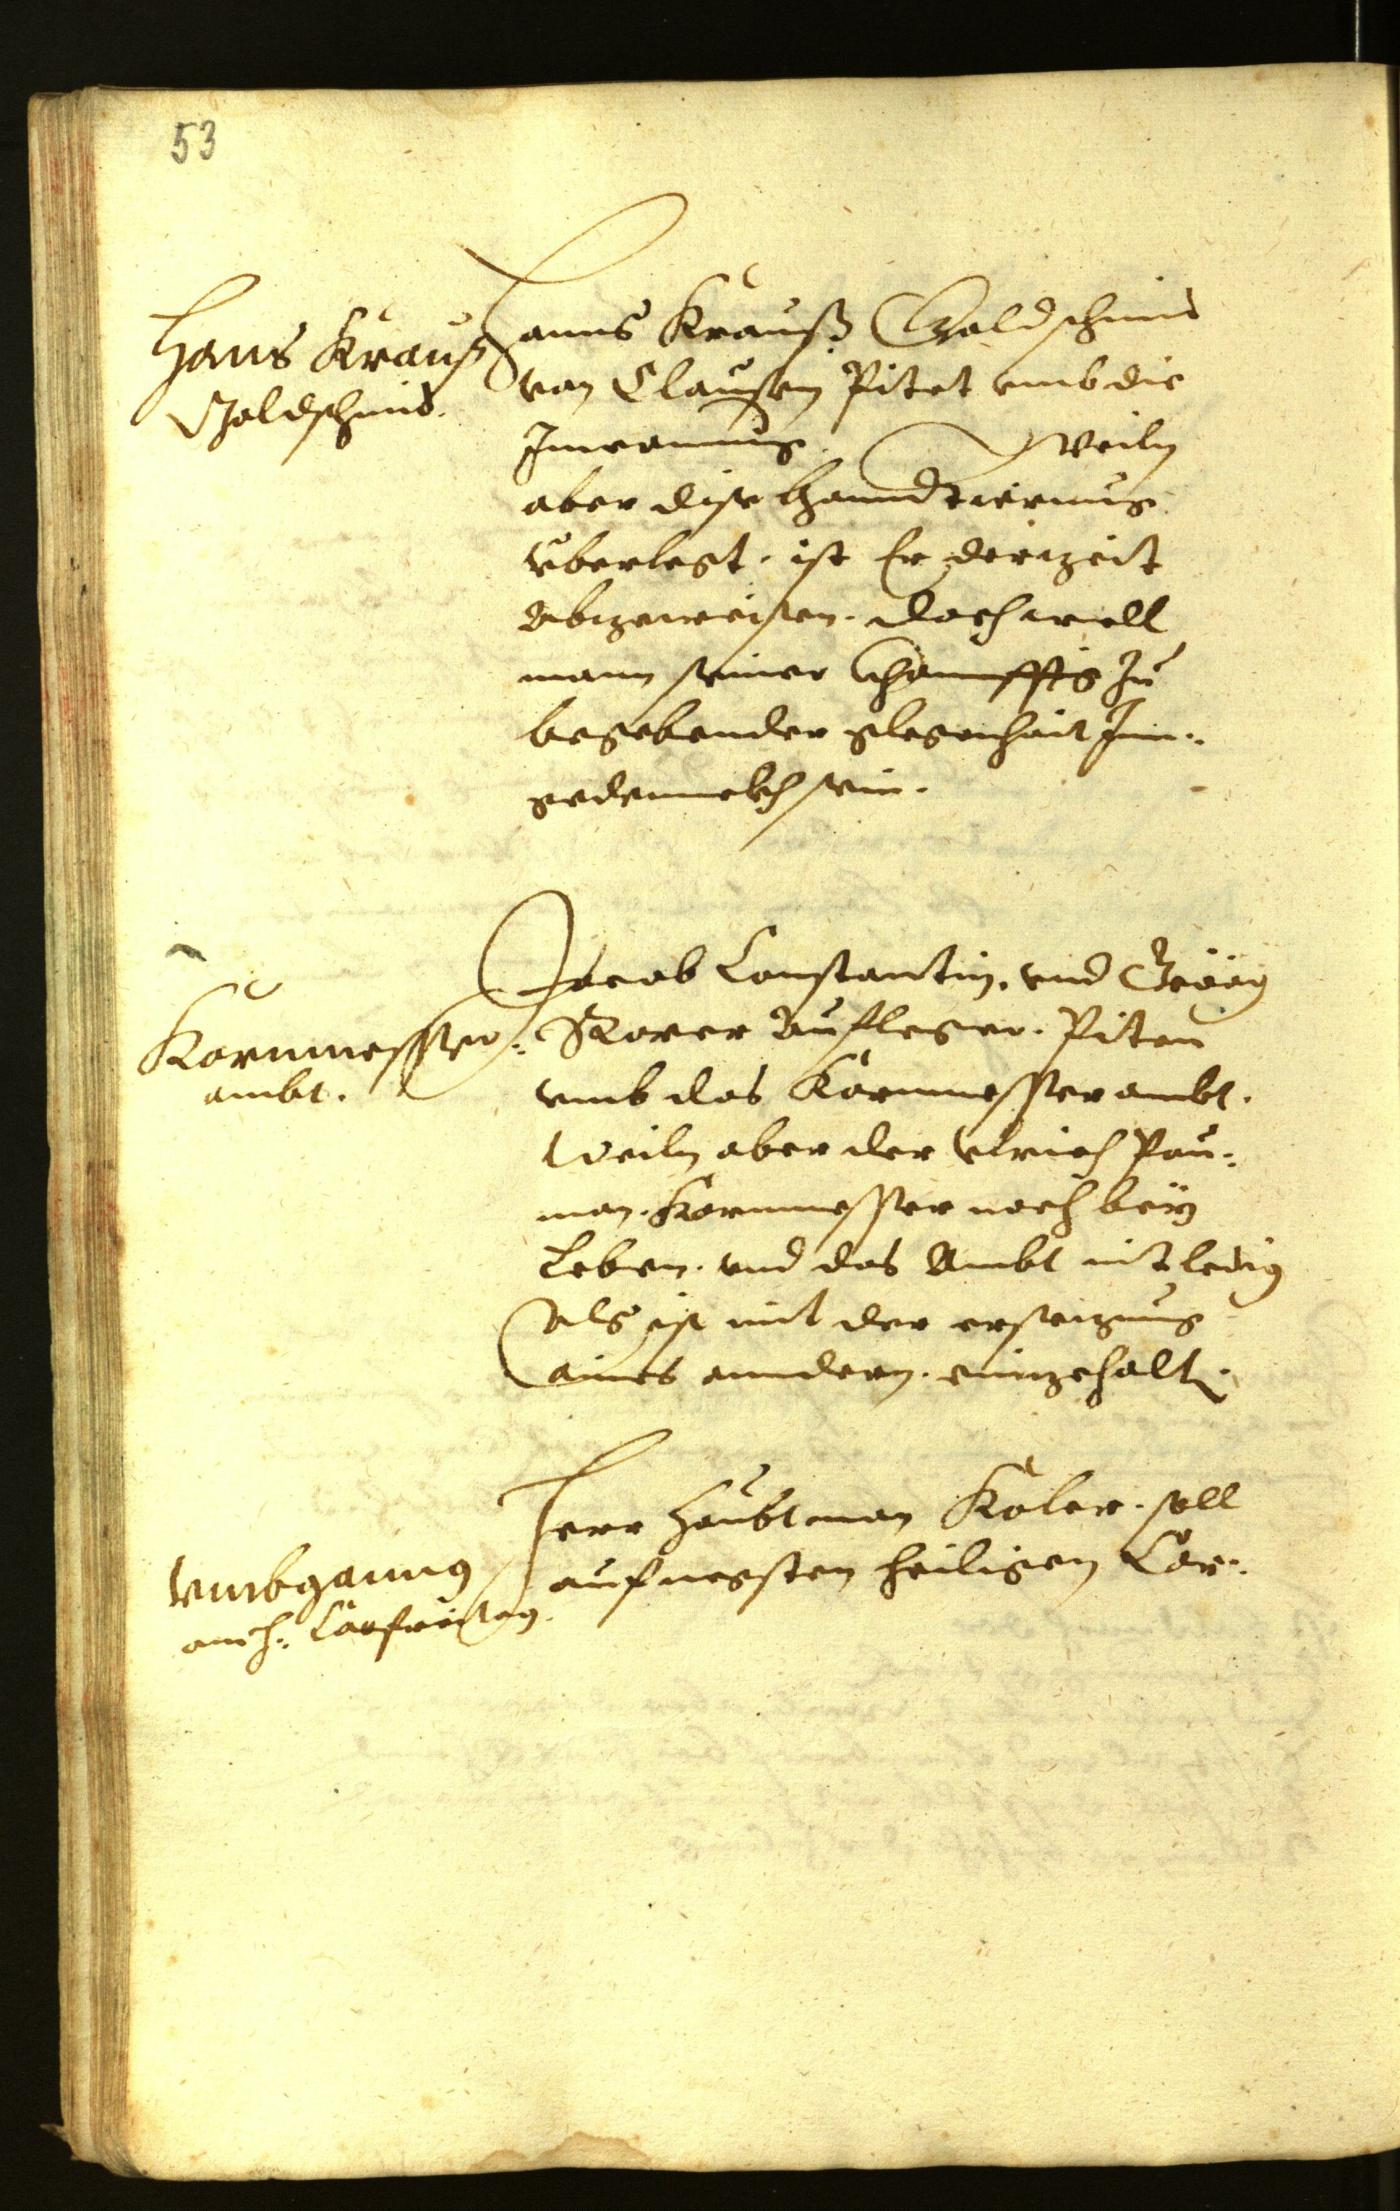 53
Hans Krauß
Goldschmid.
Hanns Krauß Goldschmid
von Clausen Pitet umb die
Inwonung. Weiln
aber dise Hanndtierung
überlegt, ist Er derzeit
Abgewisen. doch will
mann seiner khonfftig zu
begebender glegenhait Inn-
gedennckh sein.
Kornmesser-
ambt.
Jacob Constantin, und Geörg
Aufleger. Piten
umb das Kornmesser ambt.
Weiln aber der Ulrich Pau-
man. Kornmesser noch beÿ
Leben. und das Ambt nit ledig
Als ist mit der ersezung
aines anndern. eingehalt.
Umbganng
am h: Carfreitag.
Herr Haubtman Koler. soll
auf negsten heiligen Car-